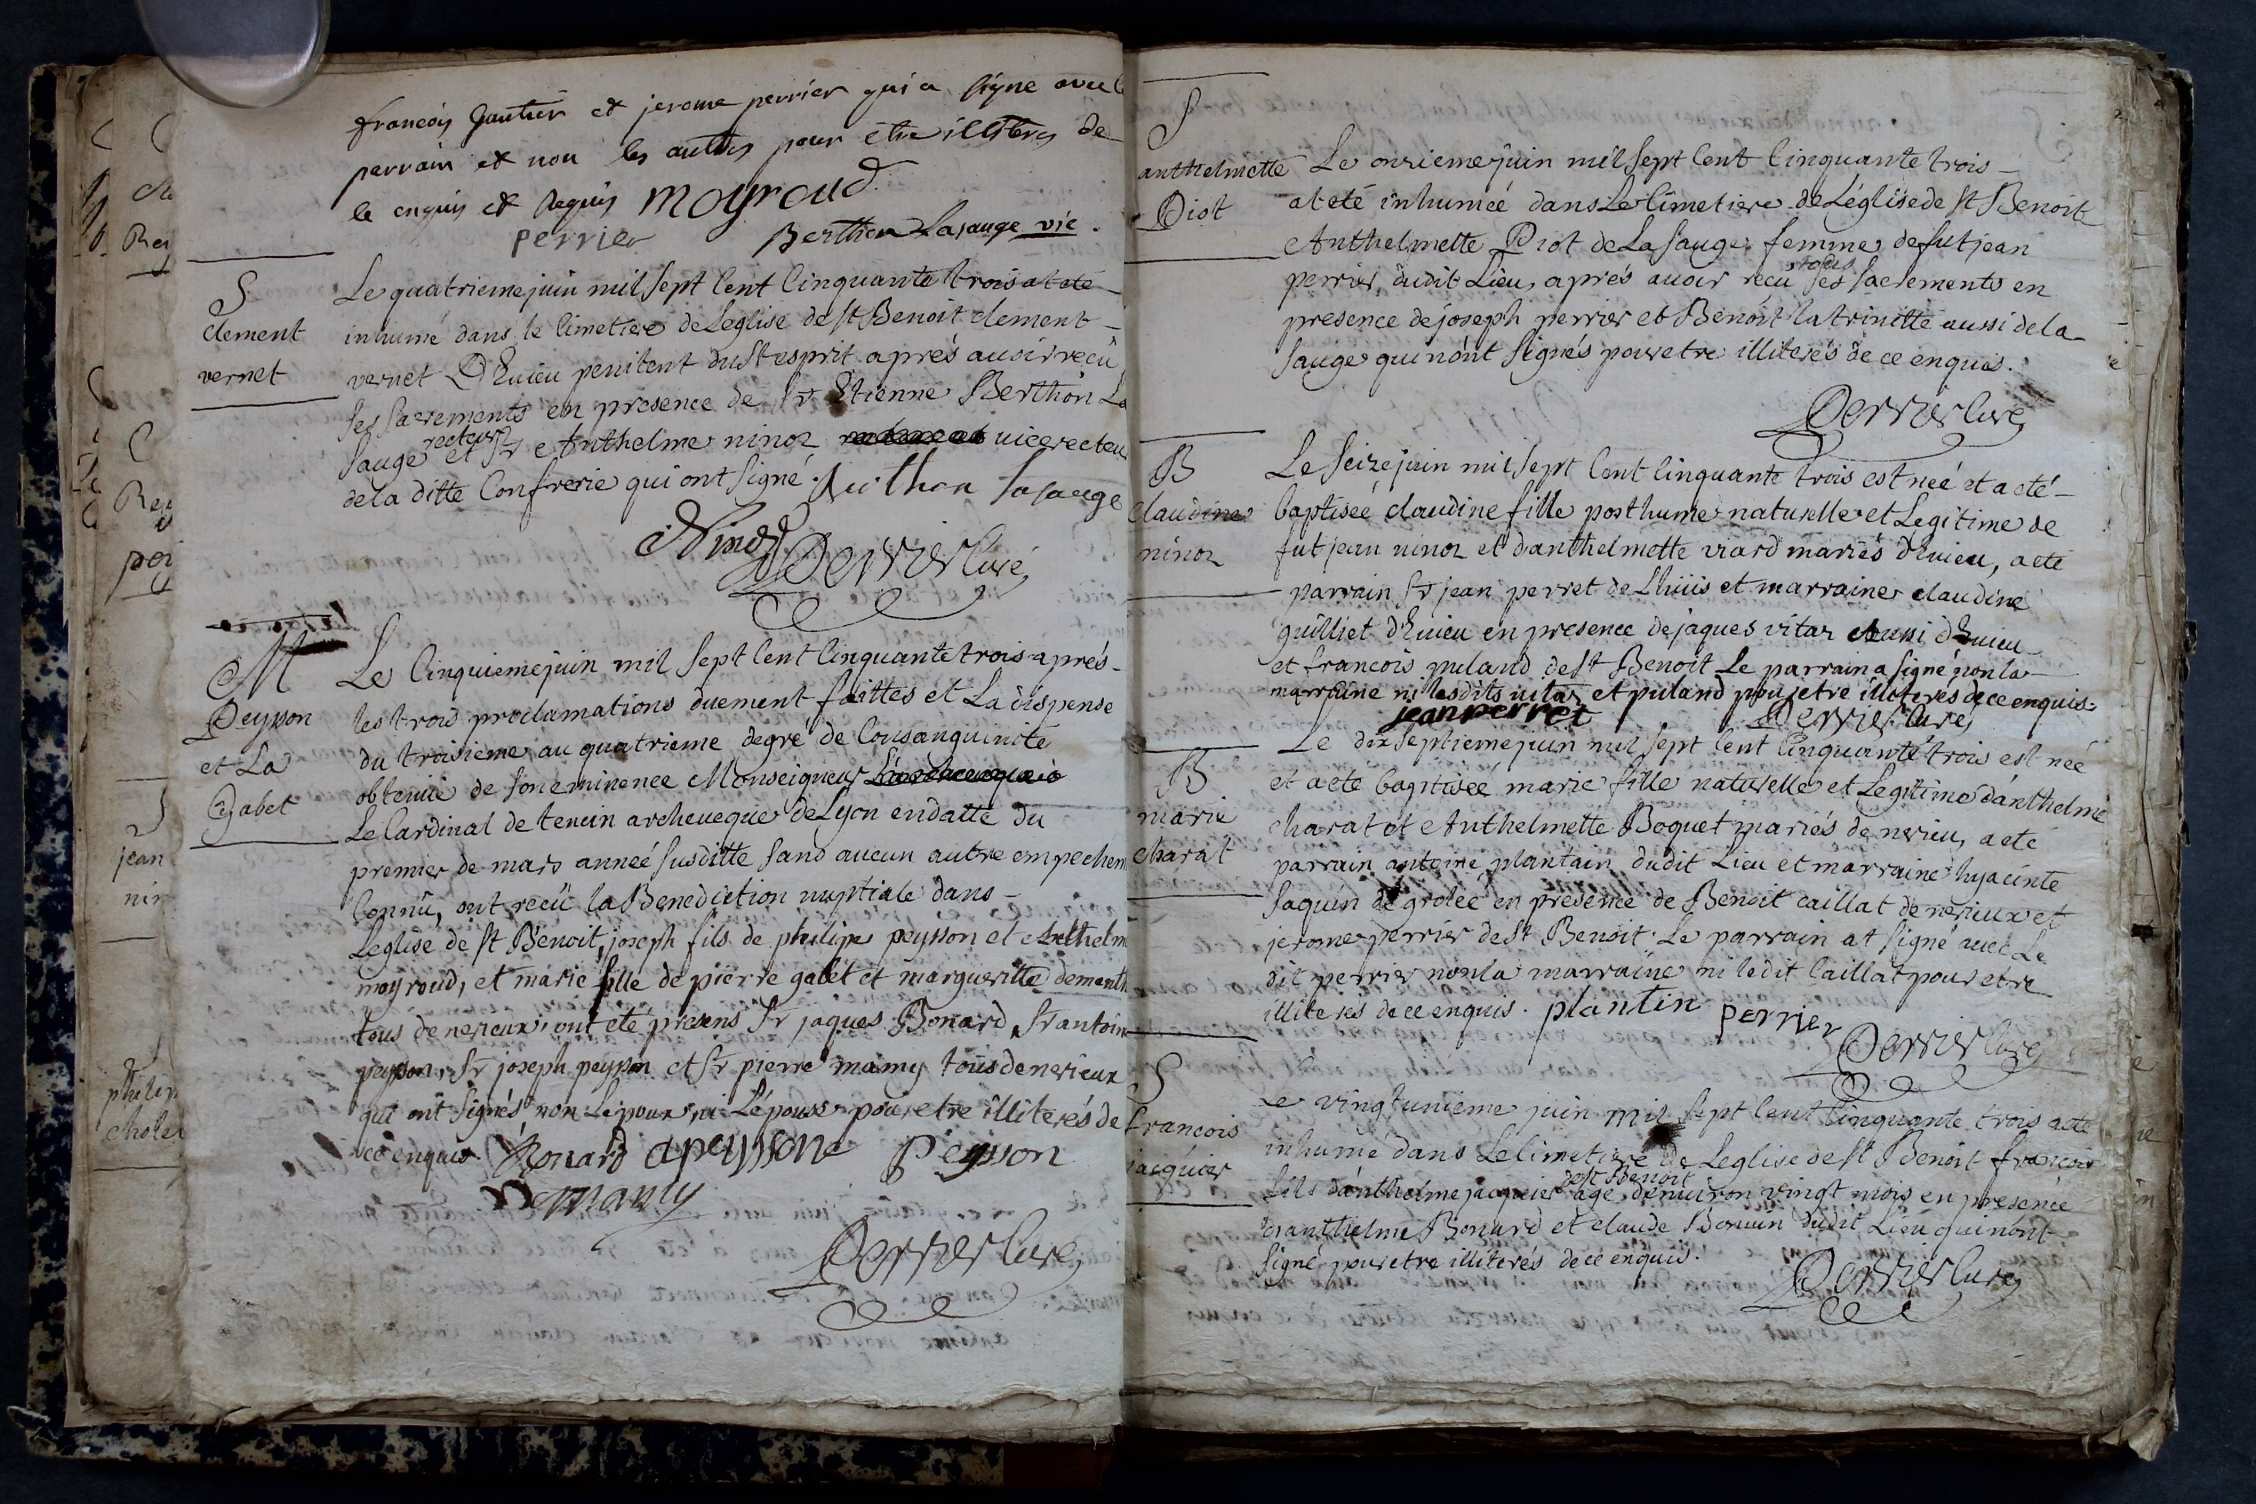 françois gautier et jerome perrier qui a signe avec le
parrain et non les autres pour etre illiteres de
ce enquis et requis moyroud
perrier Berthon Lasauge vic.
S
clement
vernet
Le quatrieme juin mil sept cent cinquante trois at eté
inhumé dans le cimetiere de Leglise de st Benoit clement
vernet D'Evieu penitent du st esprit aprés avoir recû
ses sacrements en presence de Sr Etienne Berthon La
sauge recteur et Sr Anthelme ninoz vice recteur
de la ditte Confrerie qui ont signé. Berthon lasauge
Ninoz
Perrier Curé
M
Peysson
et La
Gabet
Le Cinquieme juin mil sept cent cinquante trois aprés
les trois proclamations duement faittes et La dispense
du troisieme au quatrieme degré de Consanguinité
obtenüe de son eminence Monseigneur
Le Cardinal de tencin archeveque de Lyon en datte du
premier de mars anneé susditte sans aucun autre empechem
Connû, ont recû la Benediction nuptiale dans
Leglise de st Benoit, joseph fils de philipe peysson et Anthelm
moyroud, et marie fille de pierre gabet et margueritte dementh
tous de nerieux, ont eté presens Sr jaques Bonard, Sr antoin
peysson, Sr joseph peysson et Sr pierre mamy tous de nerieux
qui ont signés non Lepoux ni Lépouse pour etre illiterés de
ce enquis Bonard apeyssone Peysson
P mamy
Perrier Curé
S
anthelmette
Piot
Le onzieme juin mil sept cent cinquante trois
at eté inhumeé dans Le Cimetiere de Léglise de st Benoit
Anthelmette Piot de La sauge femme de fut jean
perrier dudit Lieu, aprés avoir recu tous ses sacrements en
presence de joseph perrier et Benoit latrinitte aussi de la
sauge qui n'ont signés pour etre illiterés de ce enquis.
Perrier Curé
B
Claudine
ninoz
Le seize juin mil sept cent cinquante trois est neé et a eté
baptiseé claudine fille posthume naturelle et Legitime de
fut jean ninoz et danthelmette viard mariés d'Evieu, a eté
parrain Sr jean perret de Lhuiis et marraine claudine
guilliet d'Evieu en presence de jaques vitaz aussi d'Evieu
et francois puland de st Benoit Le parrain a signé non la
marraine ni lesdits vitaz et puland pour etre illiterés de ce enquis.
jean perret Perrier Curé
B
marie
charat
Le dix septieme juin mil sept cent cinquante trois est neé
et a eté baptiseé marie fille naturelle et Legitime d'anthelme
charat et Anthelmette Boquet mariés de nerieu, a eté
parrain antoine plantain dudit Lieu et marraine hyacinte
saquin de groleé en presence de Benoit caillat de nerieux et
jerome perrier de st Benoit. Le parrain at signé avec Le
dit perrier non la marraine ni ledit Caillat pour etre
illiterés de ce enquis. plantin perrier
Perrier Curé
S
francois
jacquier
Le vingtunieme juin mil sept cent cinquante trois a eté
inhumé dans Le cimetiere de Leglise de st Benoit francois
fils d'anthelme jacquier de st Benoit agé d'environ vingt mois en presence
d'anthelme Bonard et claude Bouvin dudit Lieu qui n'ont
signé pour etre illiterés de ce enquis.
Perrier Curé